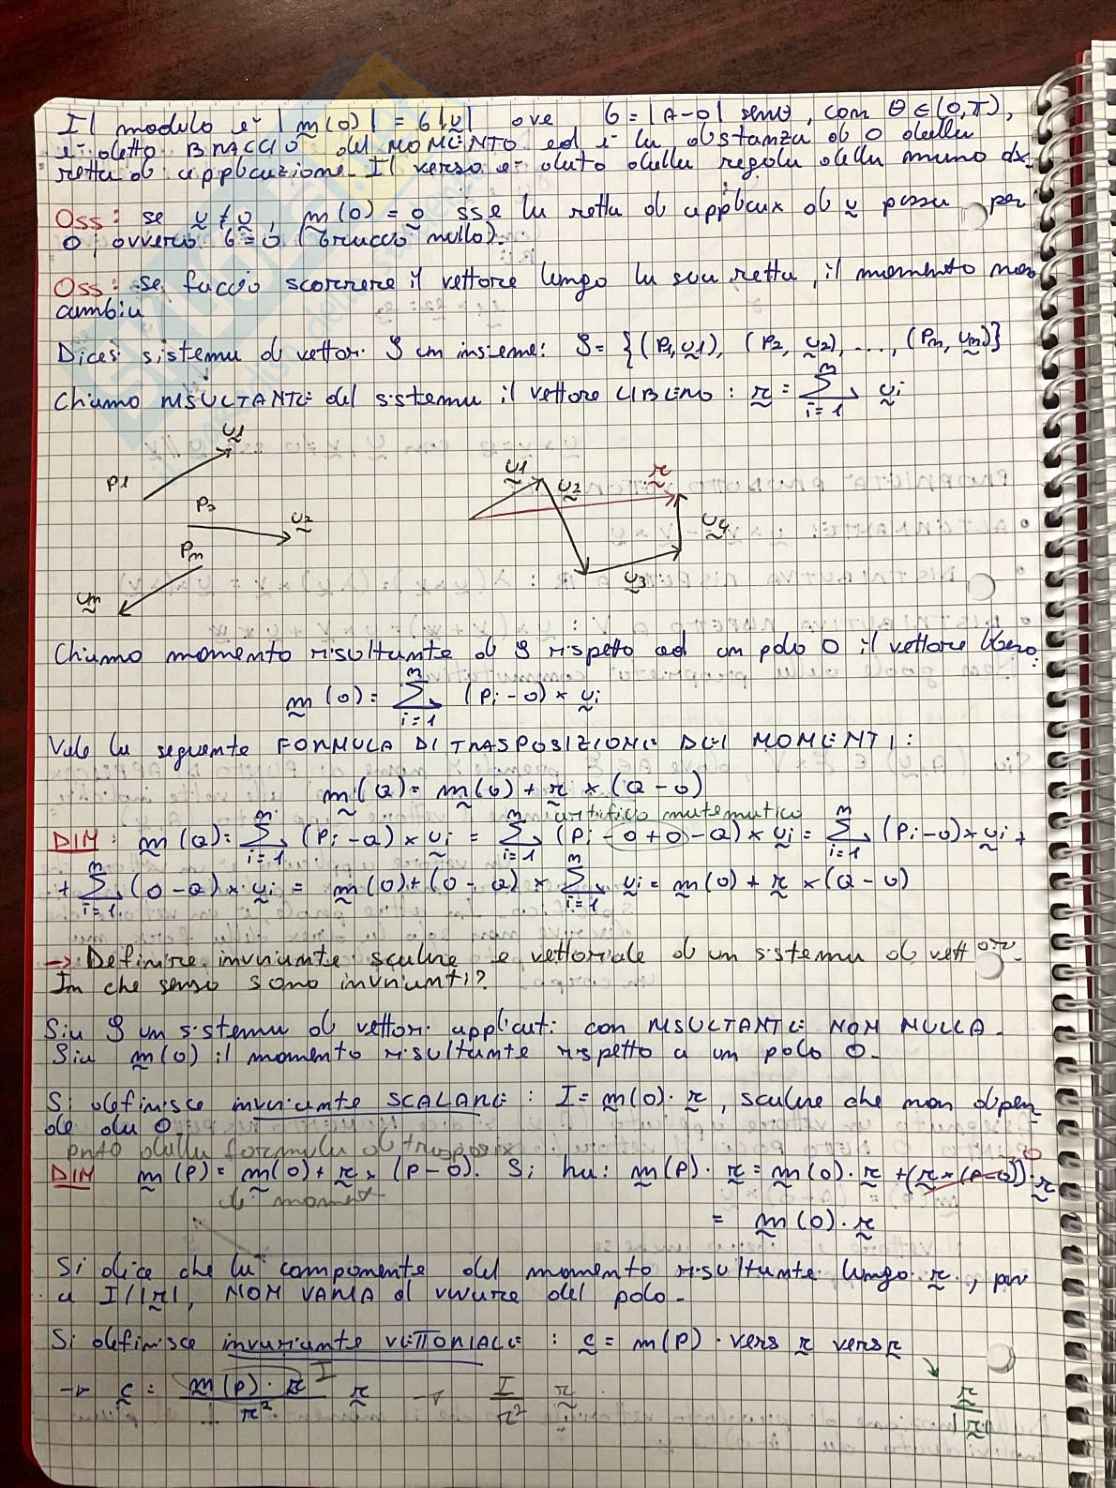 Il modulo è |m(O)| = b|v| ove b = |A-O| senθ, con θ∈(0,π),
è detto BRACCIO del MOMENTO ed è la distanza di O dalla
retta di applicazione. Il verso è dato dalla regola della mano dx.
Oss: se v ≠ 0, m(O) = 0 sse la retta di applicaz di v passa per
O, ovvero b = 0 (braccio nullo).
Oss: se faccio scorrere il vettore lungo la sua retta, il momento non
cambia
Dicesi sistema di vettori S un insieme: S = {(P1, v1), (P2, v2), ..., (Pn, vn)}
Chiamo RISULTANTE del sistema il vettore LIBERO: r = Σ_{i=1}^{n} vi
P1 v1
P2 v2
Pn vn
v1 v2 r
v3 v4
Chiamo momento risultante di S rispetto ad un polo O il vettore libero:
m(O) = Σ_{i=1}^{n} (Pi - O) × vi
Vale la seguente FORMULA DI TRASPOSIZIONE DEI MOMENTI:
m(Q) = m(O) + r × (Q - O)
artificio matematico
DIM: m(Q) = Σ_{i=1}^{n} (Pi - Q) × vi = Σ_{i=1}^{n} (Pi - O + O - Q) × vi = Σ_{i=1}^{n} (Pi - O) × vi +
+ Σ_{i=1}^{n} (O - Q) × vi = m(O) + (O - Q) × Σ_{i=1}^{n} vi = m(O) + r × (Q - O)
→ Definire invariante scalare e vettoriale di un sistema di vettori.
In che senso sono invarianti?
Sia S un sistema di vettori applicati con RISULTANTE NON NULLA.
Sia m(O) il momento risultante rispetto a un polo O.
Si definisce invariante SCALARE: I = m(O) · r, scalare che non dipen
de da O
parto dalla formula di trasposiz
DIM m(P) = m(O) + r × (P - O). Si ha: m(P) · r = m(O) · r + (r × (P - O)) · r 0
dei momenti
= m(O) · r
Si dice che la componente del momento risultante lungo r, pari
a I/|r|, NON VARIA al variare del polo.
Si definisce invariante VETTORIALE: c = m(P) · vers r vers r
→ c = m(P) · r I / r² r → I / r² r
r / |r|